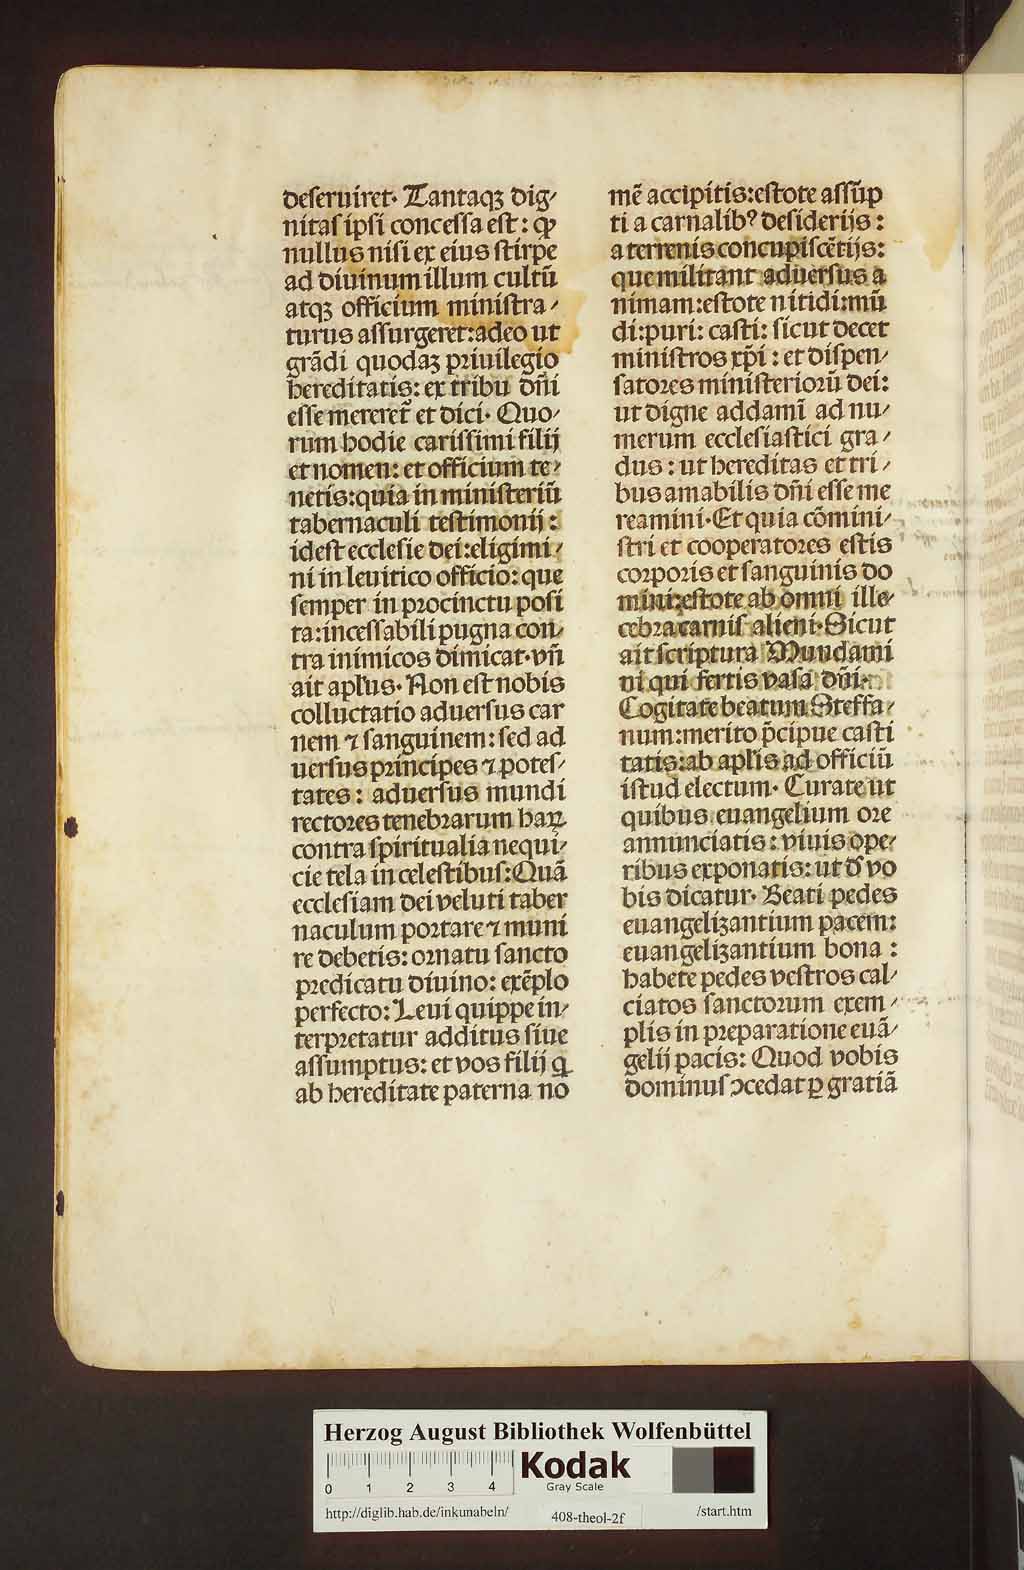 deseruiret· Tantaqꝫ dig⸗
nitas ipsi concessa est: ꝙ
nullus nisi ex eius stirpe
ad diuinum illum cultū
atqꝫ officium ministra⸗
turus assurgeret: adeo ut
grādi quodaꝫ priuilegio
hereditatis: ex tribu dn̄i
esse mereret᷑ et dici· Quo⸗
rum hodie carissimi filij
et nomen: et officium te⸗
netis: quia in ministeriū
tabernaculi testimonij:
idest ecclesie dei: eligimi⸗
ni in leuitico officio: que
semper in procinctu posi
ta: incessabili pugna con⸗
tra inimicos dimicat· vn̄
ait apl'us· Non est nobis
colluctatio aduersus car
nem ⁊ sanguinem: sed ad
uersus principes ⁊ potes⸗
tates: aduersus mundi
rectores tenebrarum haꝝ
contra spiritualia nequi⸗
cie tela in celestibus: Quā
ecclesiam dei veluti taber
naculum portare ⁊ muni
re debetis: ornatu sancto
predicatu diuino: exēplo
perfecto: Leui quippe in⸗
terpretatur additus siue
assumptus: et vos filij ꝗ
ab hereditate paterna no
mē accipitis: estote assūp
ti a carnalibꝰ desiderijs:
a terrenis concupiscētijs:
que militant aduersus a
nimam: estote nitidi: mū
di: puri: casti: sicut decet
ministros xp̄i: et dispen⸗
satores ministeriorū dei:
ut digne addamī ad nu⸗
merum ecclesiastici gra⸗
dus: ut hereditas et tri⸗
bus amabilis dn̄i esse me
reamini· Et quia cōmini⸗
stri et cooperatores estis
corporis et sanguinis do
mini: estote ab omni ille⸗
cebra carnis alieni· Sicut
ait scriptura Mundami
ni qui fertis vasa dn̄i·
Cogitate beatum Steffa⸗
num: merito p̄cipue casti
tatis: ab apl'is ad officiū
istud electum· Curate ut
quibus euangelium ore
annunciatis: viuis ope⸗
ribus exponatis: ut đ vo
bis dicatur· Beati pedes
euangelizantium pacem:
euangelizantium bona:
habete pedes vestros cal⸗
ciatos sanctorum exem⸗
plis in preparatione euā⸗
gelij pacis: Quod vobis
dominus ↄcedat ꝑ gratiā
Herzog August Bibliothek Wolfenbüttel
0 1 2 3 4
Kodak
Gray Scale
http://diglib.hab.de/inkunabeln/ 408-theol-2f /start.htm